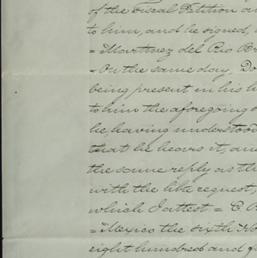 of the Fiscal Petition an
to him, and he signed,
= Martinez del Rio Br
= On the same day, Do
being present in his h
to him the aforegoing
he, having understood
that he hears it, and
the same reply as th
with the like request,
which I attest = E. R
= "Mexico the sixth No
eight hundred and f